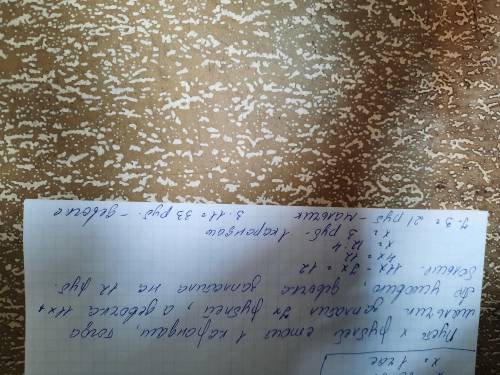 x = 1 час
Пусть x рублей стоит 1 карандаш, тогда
мальчик заплатил 7x рублей, а девочка 11x.
По условию, девочка заплатила на 12 руб.
больше.
11x - 7x = 12
4x = 12
x = 12 : 4
x = 3 руб - 1 карандаш
7 · 3 = 21 руб - мальчик
3 · 11 = 33 руб. - девочка